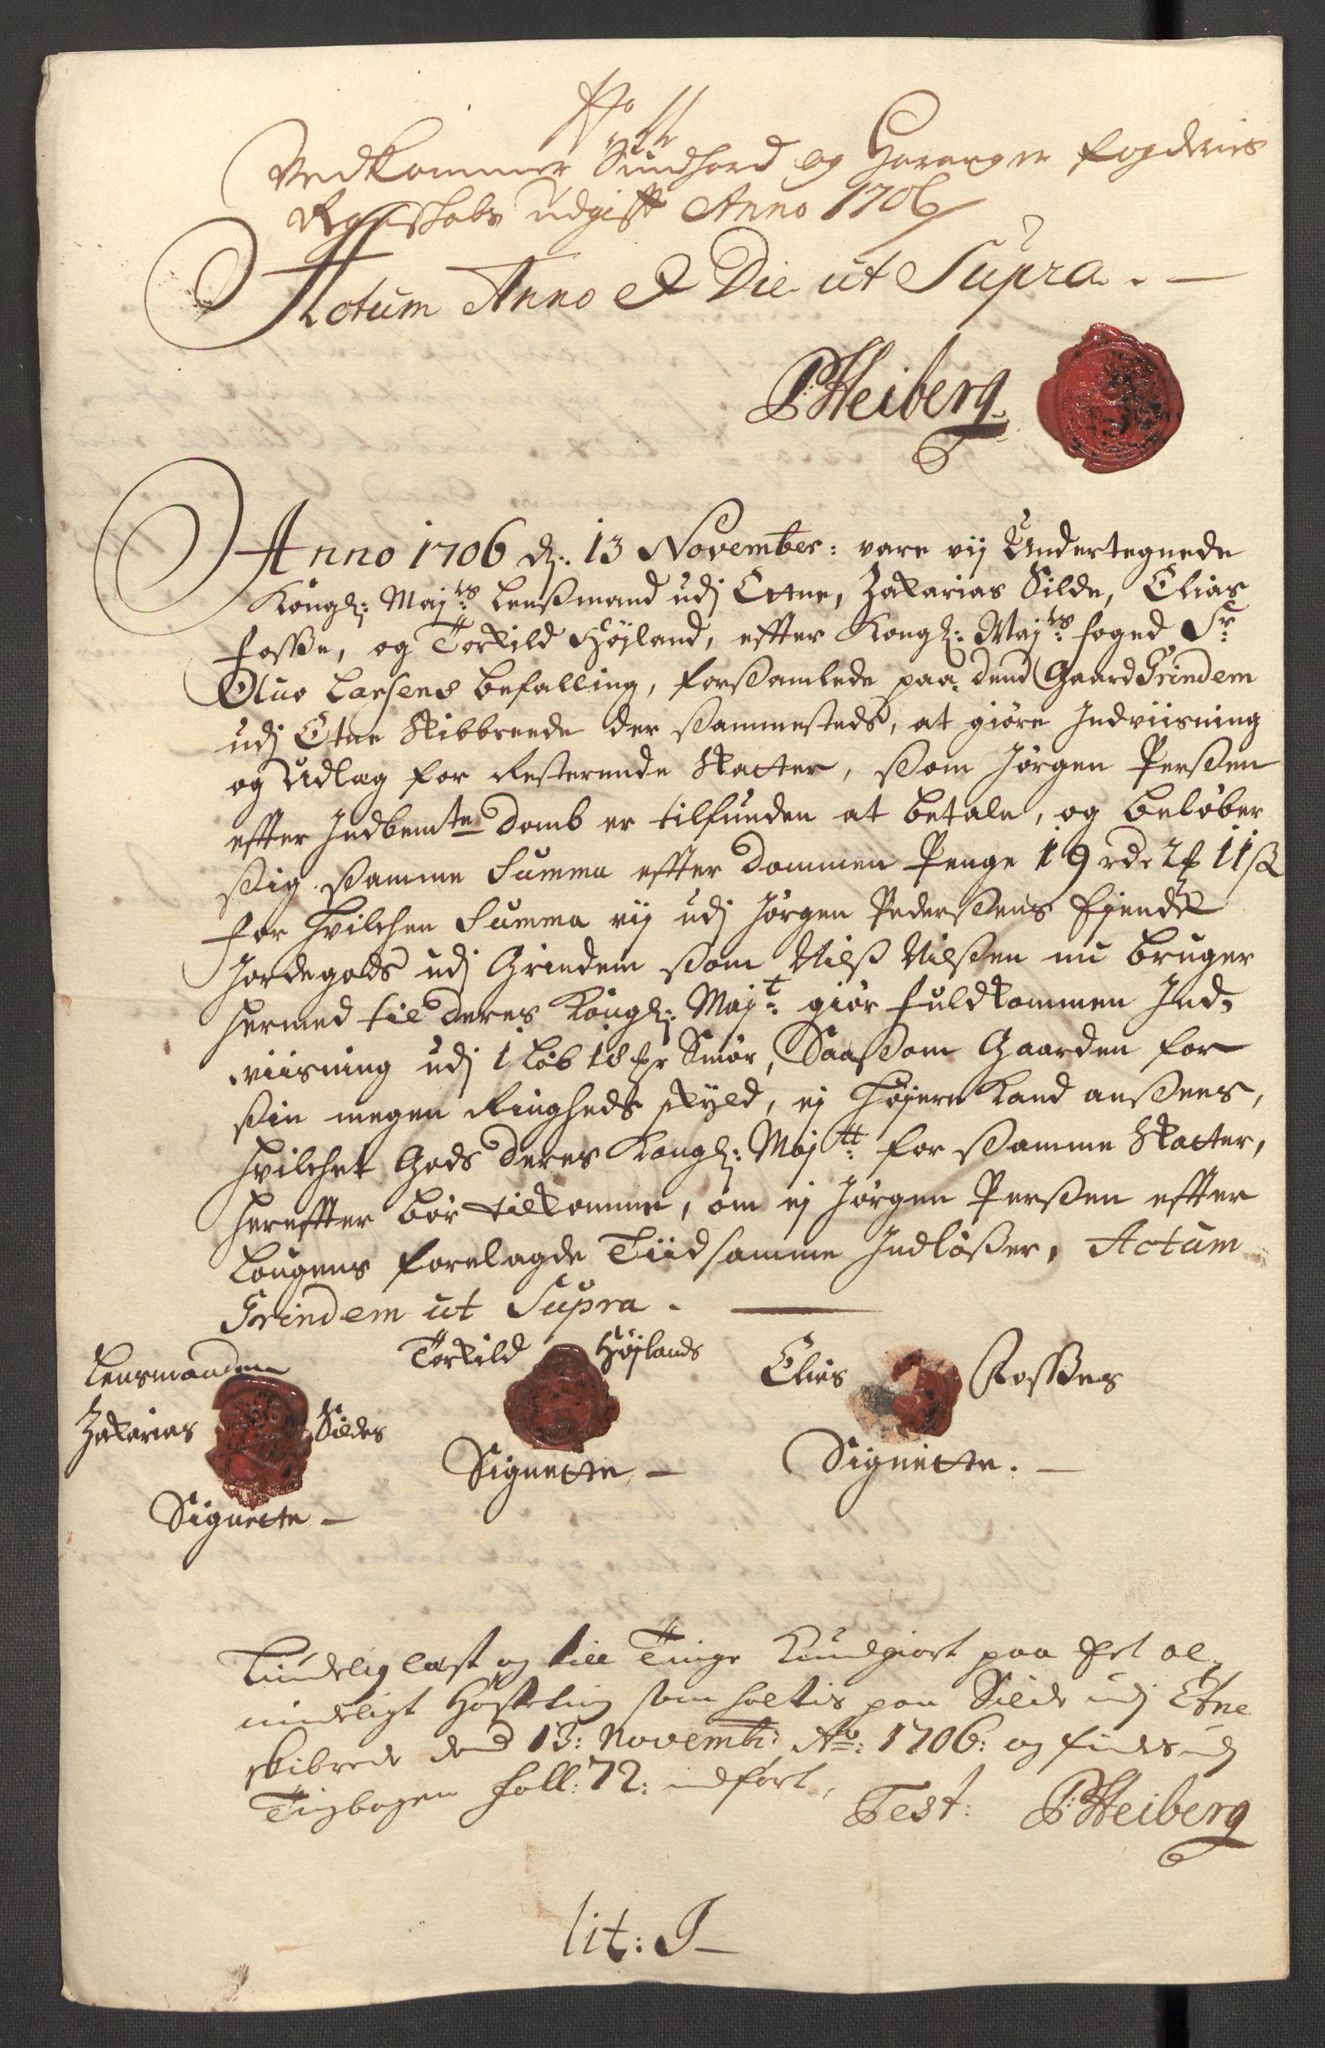 No 11
Vedkommer Sundhord og Haranger fogderies
Regnskabs udgifft Anno 1706
Actum Anno & Die ut Supra. —
P: Heiberg
Anno 1706 d: 13 November: vare vij Undertegnede
Kongl: Majts: Lenßmand udj Ettne, Zakarias Silde, Elias
Fosse, og Torkild Højland, effter Kongl: Majts: foged Sr:
Oluo Larsens befalling, forßamlede paa dend Gaard Grindem
udj Etne Skibbreede der ßammesteds, at giøre Indviisning
og Udlag for Resterende Skatter, ßom Jørgen Perßen
effter Indbemte Domb er tilfunden at betale, og beløber
ßig ßamme Summa effter Dommen Penge 19 rdr 2 f 11 ß
for hvilchen Summa vij udj Jørgen Pederßens Ejende
Jordegods udj Grindem ßom Nilß Nilßen nu bruger
hermed til Deres Kongl: Majt: giør fuldkommen Ind-
viisning udj 1 Løb 18 Smør, Saaßom Gaarden for
ßin megen Ringheds skyld, ej højere Kand anßees,
hvilchet Gods Deres Kongl: Majtt: for ßamme Skatter,
hereffter bør tilkomme, om ej Jørgen Perßen effter
Lougens forelagde Tiid samme Indløßer, Actum
Grindem ut Supra. —
Lensmanden Zakarias Sildes Signette —
Torkild Højlands Signette —
Elies Foßes Signette. —
Tÿdelig læst og till Tinge Kundgiort paa Et al-
mindeligt Høsteting som holtis paa Silde udj Etne
skibrede dend 13: Novembr: Ao: 1706: og findes udj
Tingbogen Foll: 72: indført,
Test: P: Heiberg
lit: J —